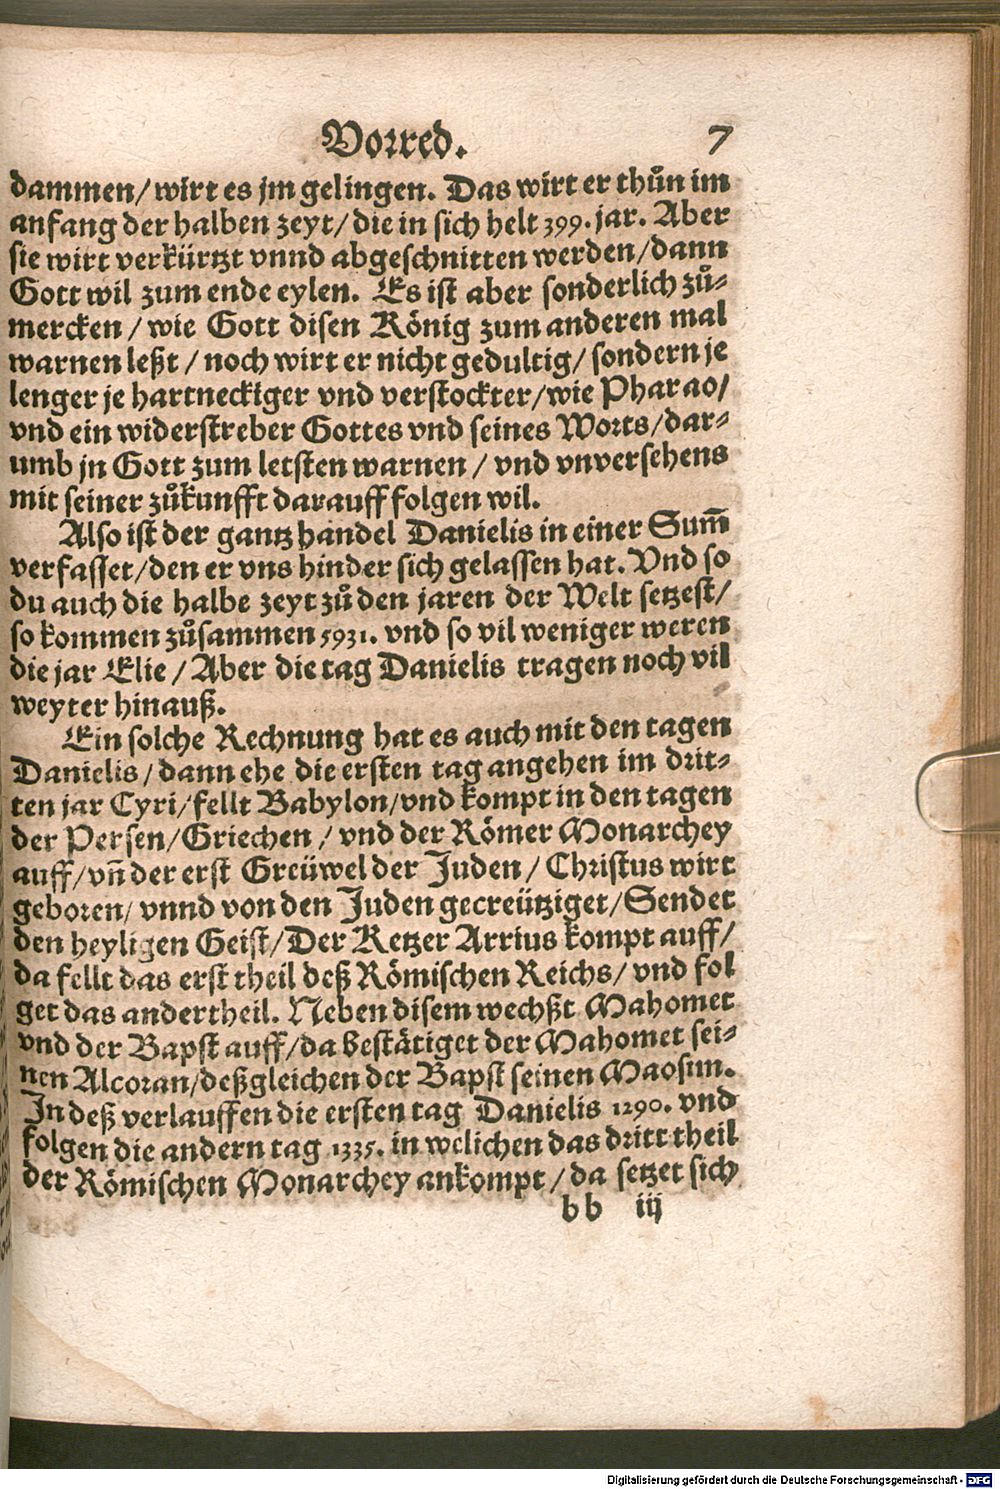 Vorred. 7
dammen/ wirt es jm gelingen. Das wirt er thůn im
anfang der halben zeyt/ die in sich helt 399. jar. Aber
sie wirt verkürtzt vnnd abgeschnitten werden/ dann
Gott wil zum ende eylen. Es ist aber sonderlich zů-
mercken/ wie Gott disen König zum anderen mal
warnen leßt/ noch wirt er nicht gedultig/ sondern je
lenger je hartneckiger vnd verstockter/ wie Pharao/
vnd ein widerstreber Gottes vnd seines Worts/ dar-
umb jn Gott zum letsten warnen/ vnd vnversehens
mit seiner zůkunfft darauff folgen wil.
Also ist der gantz handel Danielis in einer Sum̃
verfasset/ den er vns hinder sich gelassen hat. Vnd so
du auch die halbe zeyt zů den jaren der Welt setzest/
so kommen zůsammen 5931. vnd so vil weniger weren
die jar Elie/ Aber die tag Danielis tragen noch vil
weyter hinauß.
Ein solche Rechnung hat es auch mit den tagen
Danielis/ dann ehe die ersten tag angehen im drit-
ten jar Cyri/ fellt Babylon/ vnd kompt in den tagen
der Persen/ Griechen/ vnd der Römer Monarchey
auff/ vñ der erst Greüwel der Juden/ Christus wirt
geboren/ vnnd von den Juden gecreütziget/ Sendet
den heyligen Geist/ Der Ketzer Arrius kompt auff/
da fellt das erst theil deß Römischen Reichs/ vnd fol
get das andertheil. Neben disem wechßt Mahomet
vnd der Bapst auff/ da bestätiget der Mahomet sei-
nen Alcoran/ deßgleichen der Bapst seinen Maosim.
In deß verlauffen die ersten tag Danielis 1290. vnd
folgen die andern tag 1335. in welichen das dritt theil
der Römischen Monarchey ankompt/ da setzet sich
bb iij
Digitalisierung gefördert durch die Deutsche Forschungsgemeinschaft - DFG